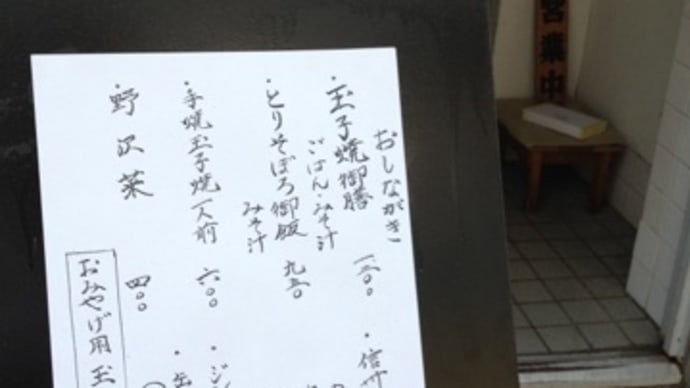 営業中
おしながき
・玉子焼御膳
ごはん・みそ汁
・とりそぼろ御飯 九五〇
みそ汁
・手焼玉子焼 一人前 六〇〇
・野沢菜 四〇〇
・信
・ジ
おみやげ用 玉